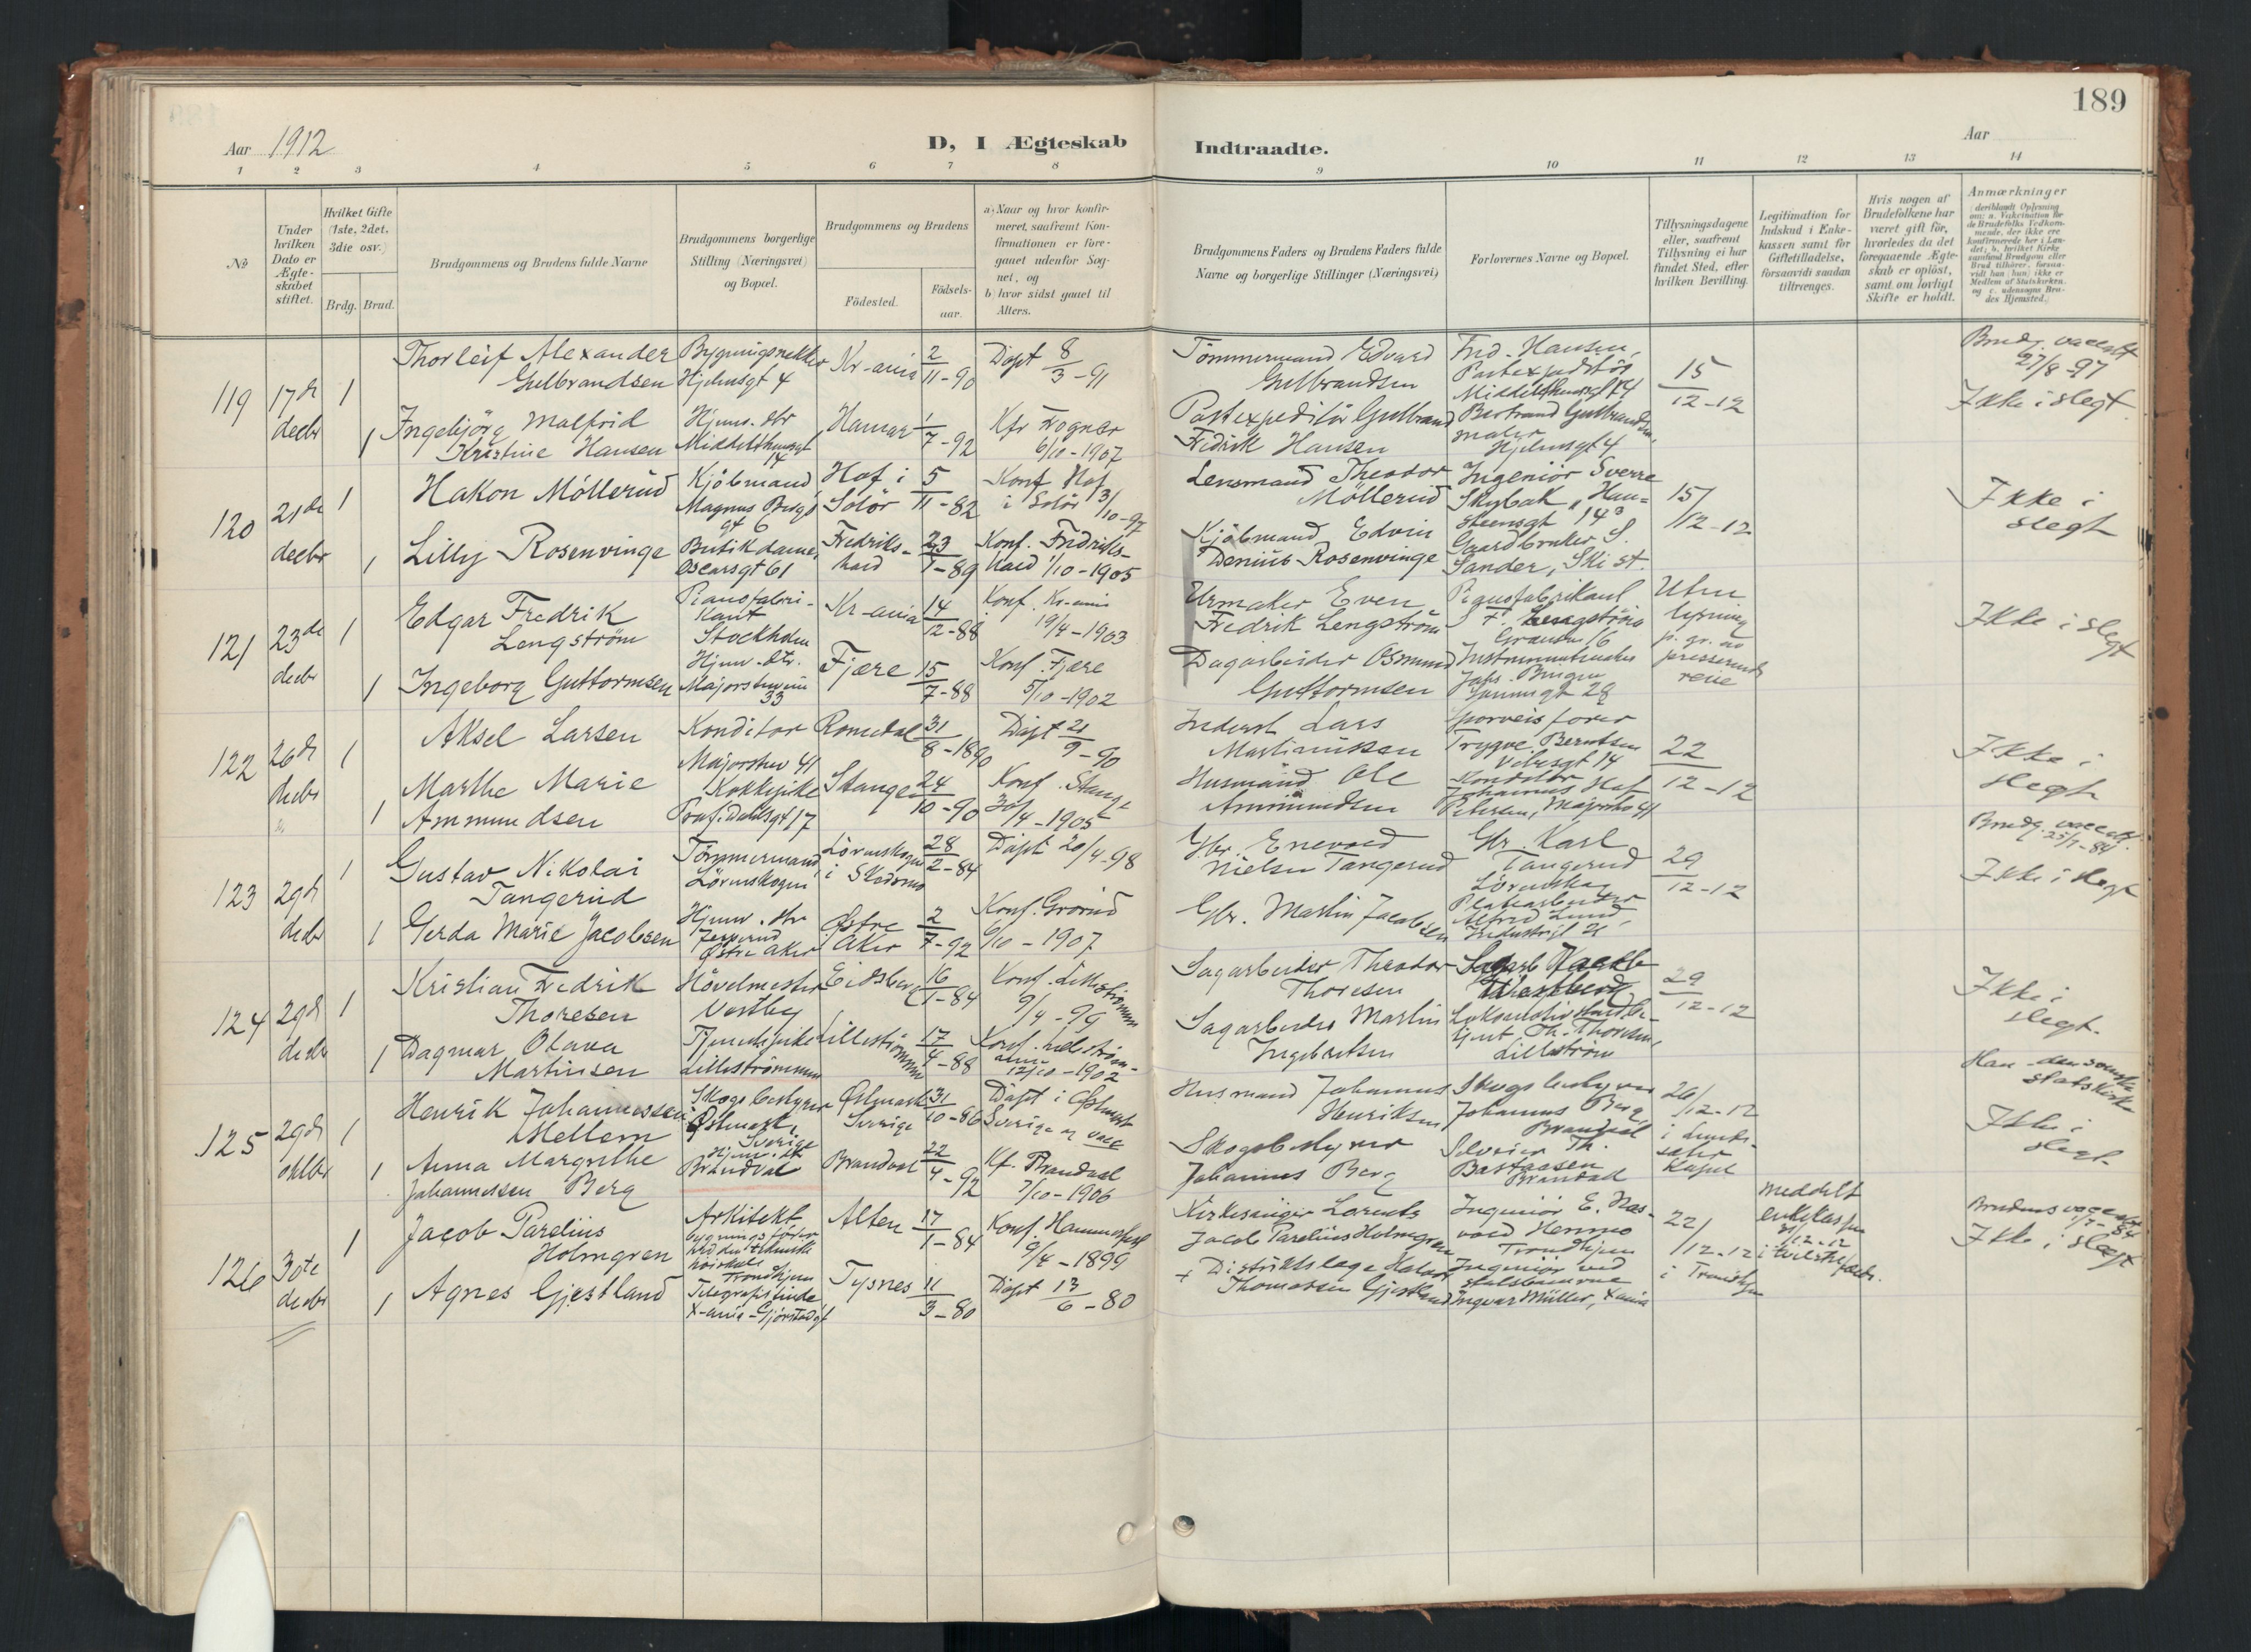 189
Aar 1912
D, I Ægteskab
Indtraadte.
Aar
1 2 3 4 5 6 7 8 9 10 11 12 13 14
No
Under hvilken Dato er Ægteskabet stiftet.
Hvilket Gifte (1ste, 2det, 3die osv.)
Brdg. Brud.
Brudgommens og Brudens fulde Navne
Brudgommens borgerlige Stilling (Næringsvei) og Bopæl.
Brudgommens og Brudens
Födested.
Födselsaar.
a) Naar og hvor konfirmeret, saafremt Konfirmationen er foregaaet udenfor Sognet, og
b) hvor sidst gaaet til Alters.
Brudgommens Faders og Brudens Faders fulde Navne og borgerlige Stillinger (Næringsvei)
Forlovernes Navne og Bopæl.
Tillysningsdagene eller, saafremt Tillysning ei har fundet Sted, efter hvilken Bevilling.
Legitimation for Indskud i Enkekassen samt for Giftetilladelse, forsaavidt saadan tiltrænges.
Hvis nogen af Brudefolkene har været gift för, hvorledes da det foregaaende Ægteskab er oplöst, samt om lovligt Skifte er holdt.
Anmærkninger
119 17de decbr 1
Thorleif Alexander Gulbrandsen
Hjelmsgt 4
Kr-ania
2/11-90
Döpt 8/3-91
Tömmermand Edvard Gulbrandsen
Fred. Hansen, Postexpeditör
Middelthunsgt 14
15/12-12
Brudg. vaccert 27/8-97
Ikke i slegt
1 Ingebjörg Malfrid Kristine Hansen
Hjem. dtr Middelthunsgt 14
Hamar
1/7-92
Kfr Frogner 6/10-1907
Postexpeditör Gulbrand Fredrik Hansen
maler Hjelmsgt 4
120 21de decbr 1
Hakon Möllerud
Kjöbmand, Magnus Bergs gt 6
Hof i Solör
5/11-82
Konf Hof i Solör 3/10-97
Lensmand Theodor Möllerud
Ingeniör Sverre
15/12-12
Ikke i slegt
1 Lilly Rosenvinge
Butikdame, Oscarsgt 61
Fredrikshald
23/7-89
Konf. Fredrikshald 1/10-1905
Kjöbmand Edvin Rosenvinge
Gaardbruker S. Sander, Ski st.
121 23de decbr 1
Edgar Fredrik Lengström
Pianofabrikant Stockholm
Kr-ania
14/12-88
Konf. Kr-ania 19/4-1903
Urmaker Even Fredrik Lengström
Pianofabrikant
Uten lysning p. gr. av
Ikke i slegt
1 Ingeborg Guttormsen
Hjem. dtr. Majorstuveien 33
Fjære
15/7-88
Konf. Fjære 5/10-1902
Dagarbeider Osmund Guttormsen
122 26de decbr 1
Aksel Larsen
Konditor Majorstuv 41
Romedal
31/8-1890
Döpt 21/9-90
Inderst Lars Martinussen
Sporveisförer Trygve Berntsen Vibesgt 14
22/12-12
Ikke i slegt
1 Marthe Marie Ammundsen
Kokkepike Prof. Dahlsgt 17
Stange
24/10-90
Konf. Stange 30/4-1905
Husmand Ole Ammundsen
Konditor
123 29de decbr 1
Gustav Nikolai Tangerud
Tömmermand, Lörenskogen
Lörenskogen i Skedsmo
28/2-84
Döpt 20/4-98
Gbr. Enevold Nielsen Tangerud
Gbr. Karl Tangerud Lörenskog
29/12-12
Brudg. vaccert.
Ikke i slegt
1 Gerda Marie Jacobsen
Hjem. dtr Östre Aker
Östre Aker
2/7-92
Konf. Grorud 6/10-1907
Gbr. Martin Jacobsen
Alfred Lund,
124 29de decbr 1
Kristian Fredrik Thoresen
Hövelmester Vestby
Eidsberg
16/1-84
Konf. Lilleströmmen 9/4-99
Sagarbeider Theodor Thoresen
29/12-12
Ikke i slegt.
1 Dagmar Olava Martinsen
Tjenestepike Lillestrømmen
Lillestrømmen
17/4-88
12/10-1902
Sagarbeider Martin Ingebretsen
Th. Thoresen, Lilleström
125 29de 1
Henrik Johannessen Mellem
Skogsbestyrer Östmark, Sverige
Östmark Sverige
31/10-86
Döpt i Östmark Sverige og vacc
Husmand Johannes Henriksen
Skogsbestyrer Johannes Berg Brandval
26/12-12
Han den svenske statskirke
Ikke i slegt
1 Anna Margrethe Johannessen Berg
Hjem. dtr Brandval
Brandval
22/4-92
Kf. Brandval 7/10-1906
Skogsbestyrer Johannes Berg
Bastaasen Brandval
126 30te decbr 1
Jacob Parelius Holmgren
Arkitekt
Trondhjem
Alten
17/1-84
Konf. Hammerfest 9/4-1899
Kirkesanger Lorents Jacob Parelius Holmgren
Ingeniör E.
Trondhjem
22/12-12 i Trondhjem
Meddelt
Brudens vacc
Ikke i slegt
1 Agnes Gjestland
Telegrafistinde X-ania
Tysnes
11/3-80
Döpt 13/6-80
+ Distriktslæge Thomassen Gjestland
Ingeniör ved statsbanerne Ingvar Müller, Xania